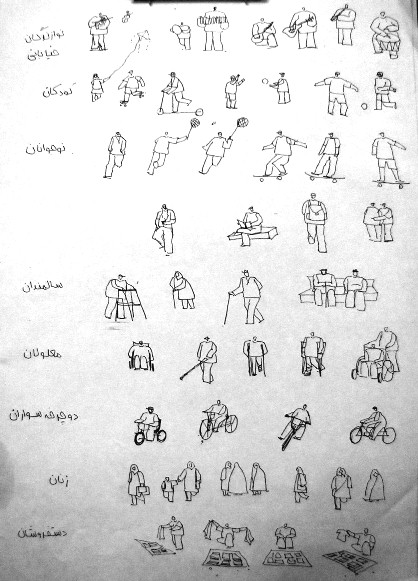 نوازندگان
خیابانی
کودکان
نوجوانان
سالمندان
معلولان
دوچرخه سواران
زنان
دستفروشان